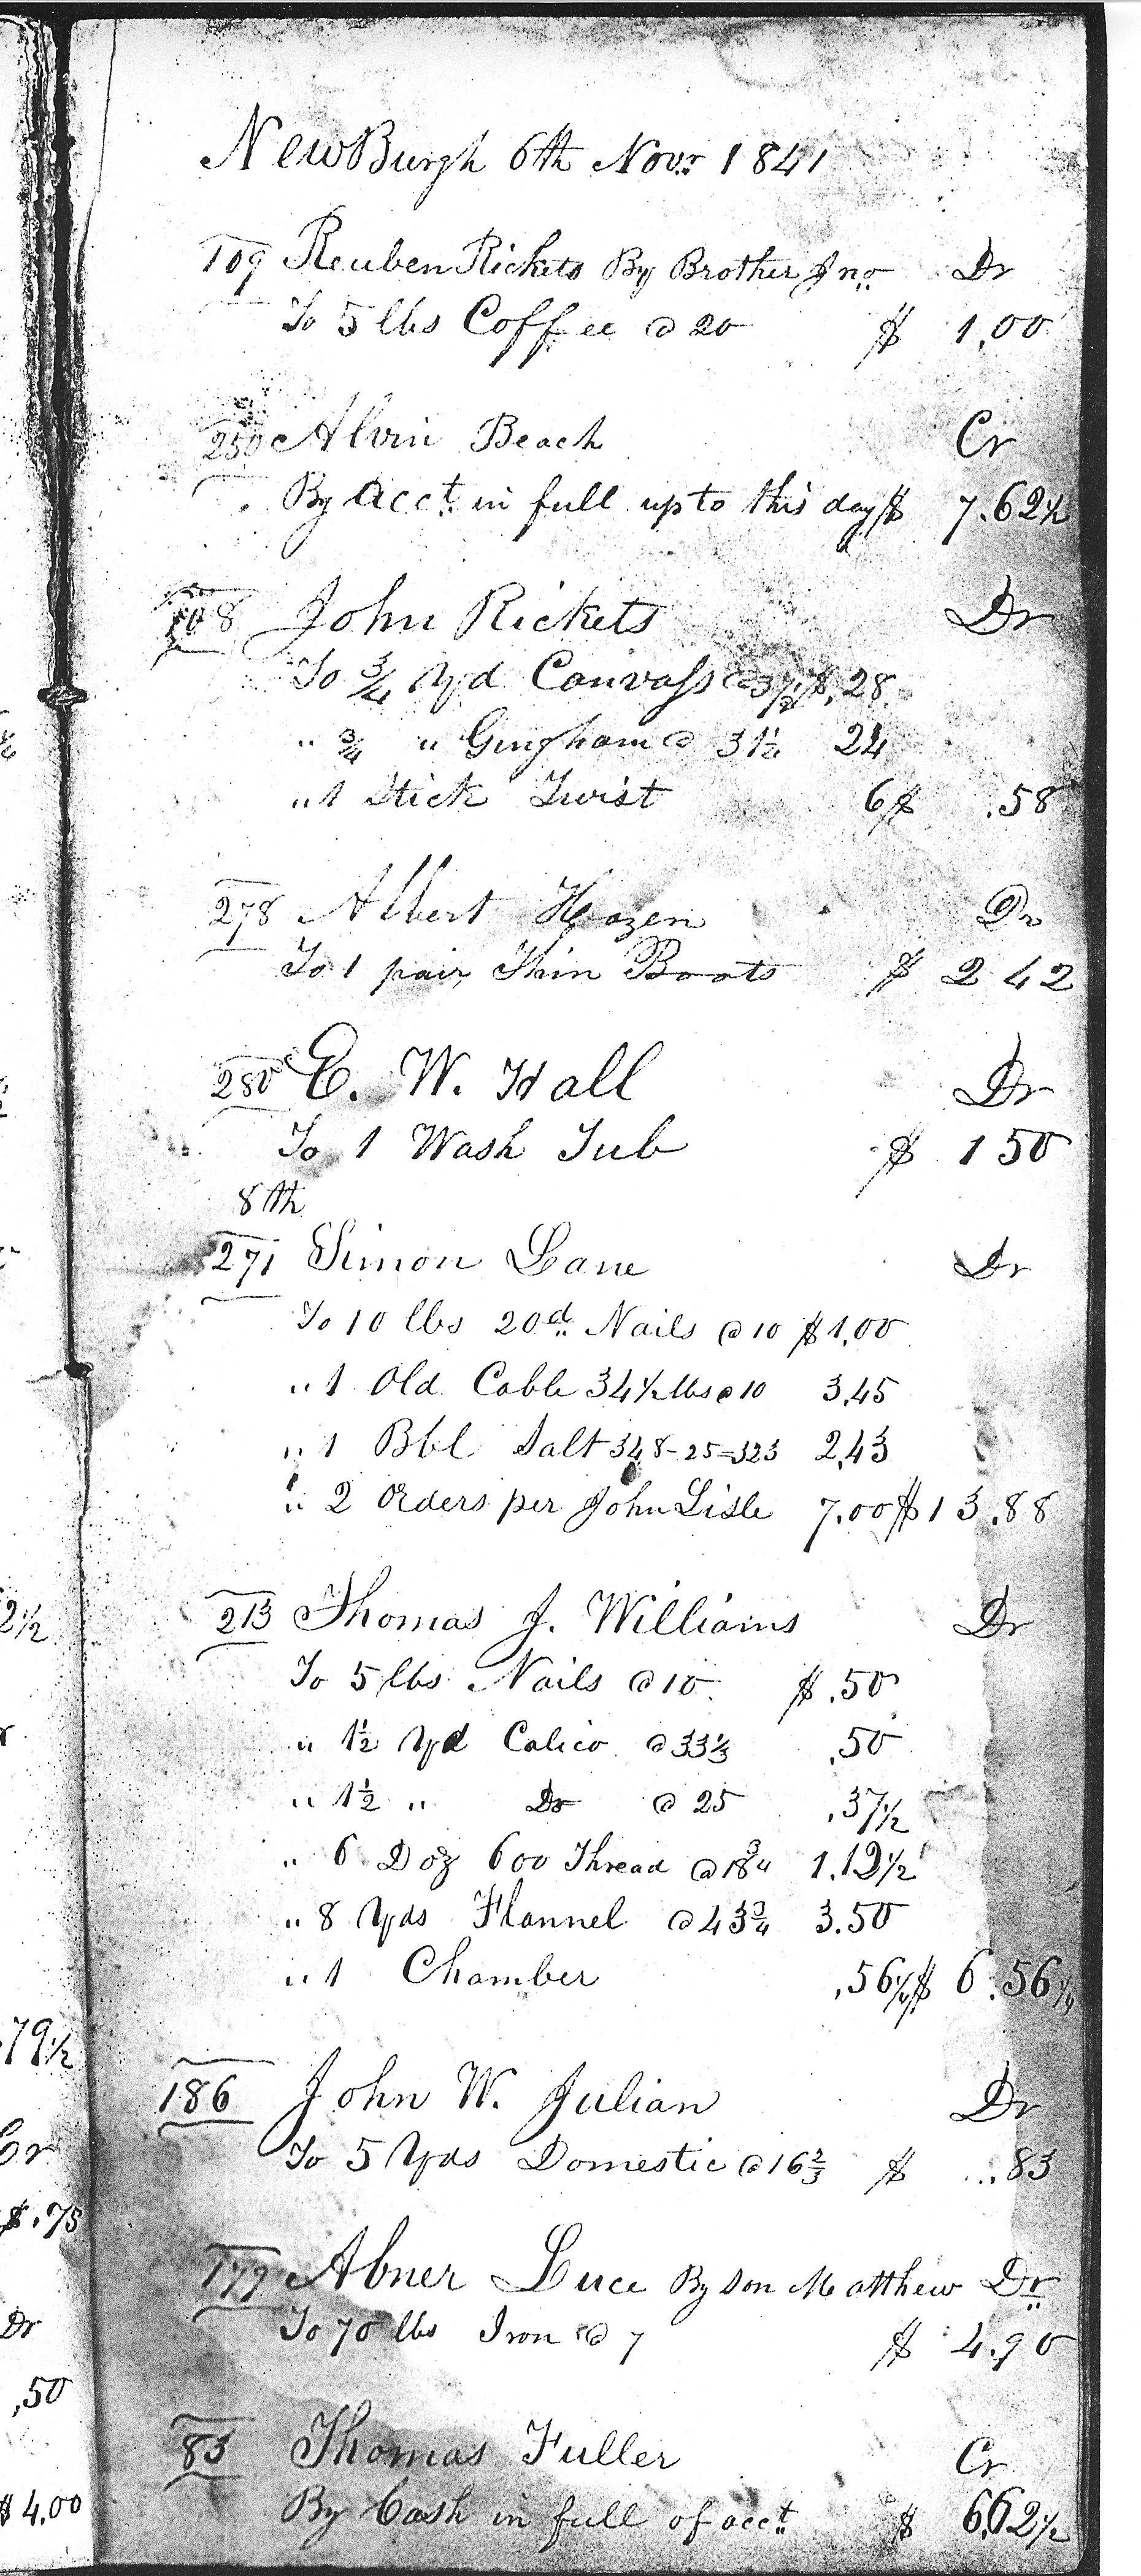 NewBurgh 6th Novr 1841
109 Reuben Rickets By Brother Jno Dr
To 5 lbs Coffee @ 20 $ 1,00
250 Alvin Beach Cr
By acct in full up to this day $ 7.62½
108 John Rickets Dr
To ¾ Yd Canvass @ 37½ $ ,28
" ¾ " Gingham @ 31¼ 24
" 1 Stick Twist 6 $ .58
278 Albert Hazen Dr
To 1 pair Thin Boots $ 2 42
280 E. W. Hall Dr
To 1 Wash Tub $ 1 50
8th
271 Simon Lane Dr
To 10 lbs 20d Nails @ 10 $ 1,00
" 1 Old Cable 34½ lbs @ 10 3,45
" 1 Bbl Salt 348-25=323 2,43
" 2 Orders per John Lisle 7.00 $ 13.88
213 Thomas J. Williams Dr
To 5 lbs Nails @ 10 $ .50
" 1½ Yd Calico @ 33⅓ ,50
" 1½ " Do @ 25 ,37½
" 6 Doz 600 Thread @ 18¾ 1.12½
" 8 Yds Flannel @ 43¾ 3.50
" 1 Chamber ,56¼ $ 6.56¼
186 John W. Julian Dr
To 5 Yds Domestic @ 16⅔ $ .83
179 Abner Luce By son Matthew Dr
To 70 lbs Iron @ 7 $ 4.90
83 Thomas Fuller Cr
By Cash in full of acct $ 6,62½
2½
.79½
Cr
$.75
Dr
,50
$4.00